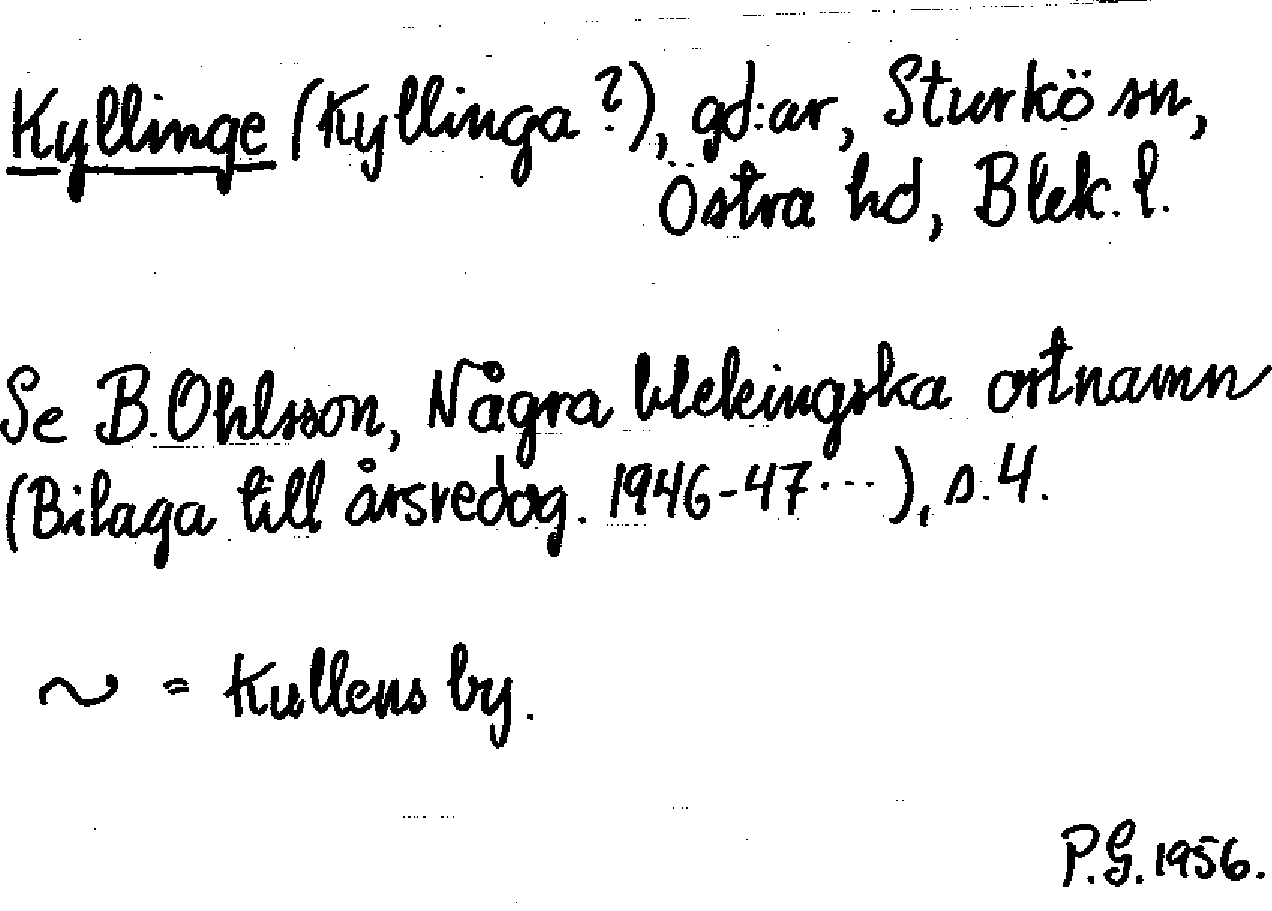 Kyllinge (Kyllinga?), gd:ar, Sturkö sn,
Östra hd, Blek. l.
Se B. Ohlsson, Några blekingska ortnamn
(Bilaga till årsredog. 1946-47...), s. 4.
~ = Kullens by.
P.G. 1956.